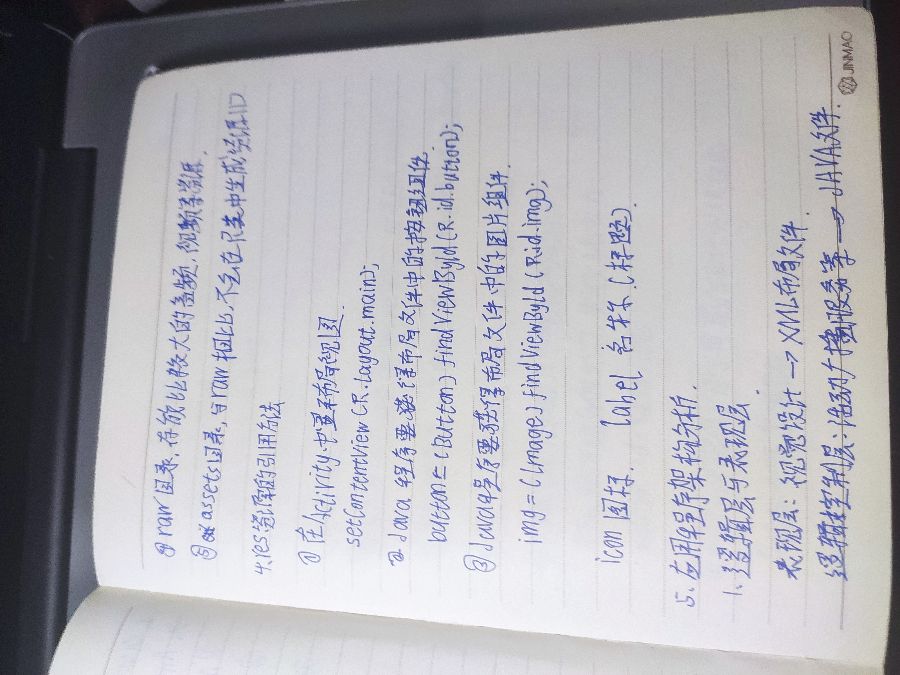 ④ raw目录,存放比较大的音频,视频等资源.
⑤ assets目录,与raw相比,不会在R类中生成资源ID
4.res资源的引用方法
① 在Activity中置布局视图.
setContentView(R.layout.main);
② Java程序要获得布局文件中的按钮组件.
button=(Button)findViewById(R.id.button);
③ Java程序要获得布局文件中的图片组件.
img=(Image)findViewById(R.id.img);
icon图标. label 名称.(标题)
5.应用程序架构分析.
1.逻辑层与表现层.
表现层:视觉设计→XML布局文件.
逻辑控制层:活动广播服务等→JAVA文件.
JINMAO